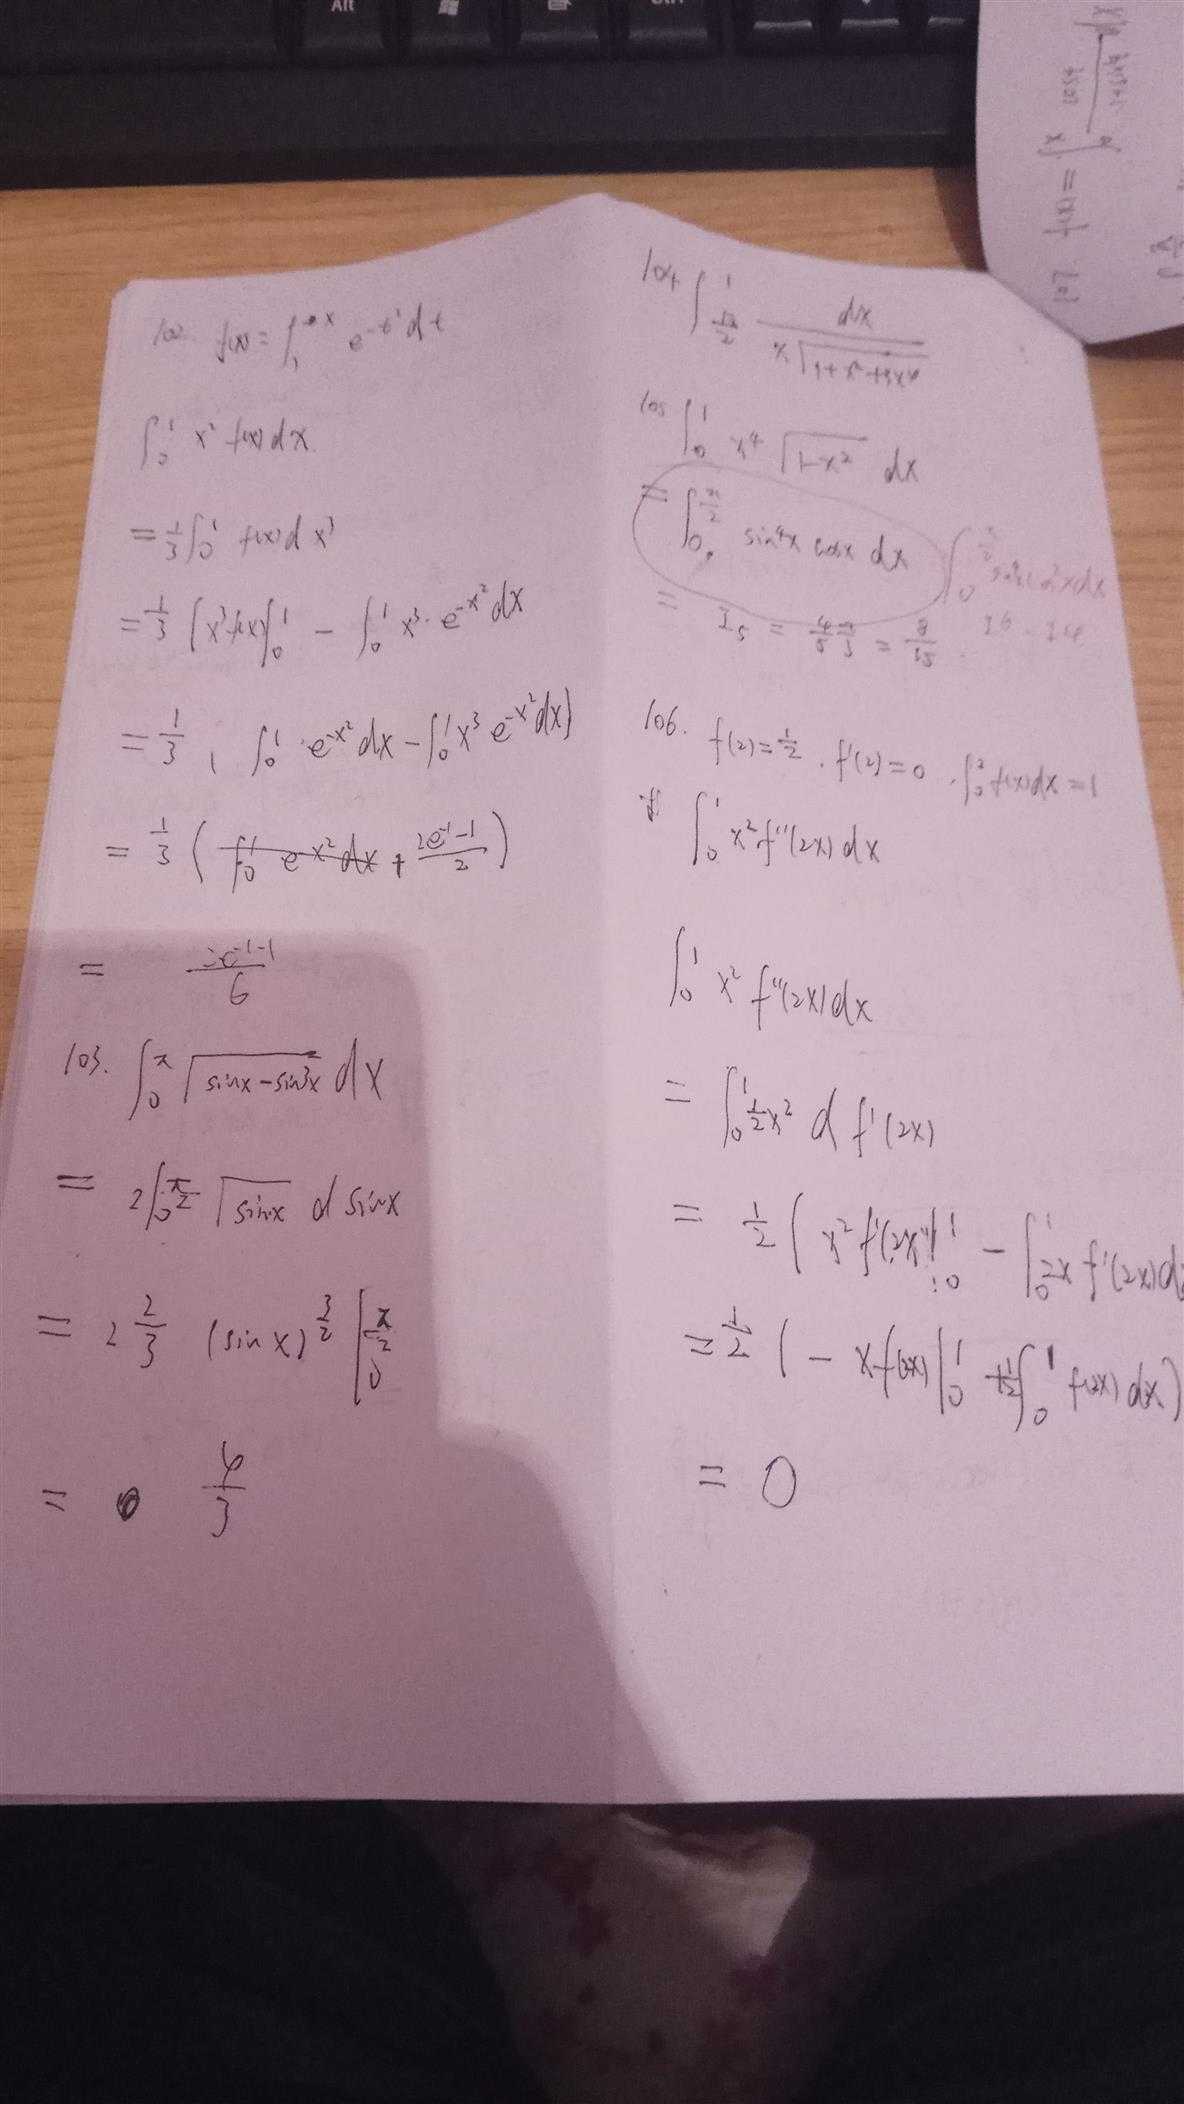 Alt
Ctrl
102. f(x) = ∫₁ˣ e^{-t²} dt
∫₀¹ x² f(x) dx
= 1/3 ∫₀¹ f(x) d x³
= 1/3 [x³ f(x)|₀¹ - ∫₀¹ x³ · e^{-x²} dx
= 1/3 ( ∫₀¹ e^{-x²} dx - ∫₀¹ x³ e^{-x²} dx ]
= 1/3 ( ∫₀¹ e^{x²} dx + (2e^{-1} - 1)/2 )
= (2e^{-1} - 1)/6
103. ∫₀^π √(sinx - sin³x) dx
= 2∫₀^{π/2} √(sinx) d sinx
= 2 2/3 (sin x)^{3/2} |₀^{π/2}
= 4/3
104
dx
105 ∫₀¹ x⁴ √(1-x²) dx
= ∫₀^{π/2} sin⁴x cosx dx
= I₅ = 4/5 2/3 = 8/15
I6 - I4
106. f(2) = 1/2 . f'(2) = 0 . ∫₀² f(x) dx = 1
∫₀¹ x² f''(2x) dx
∫₀¹ x² f''(2x) dx
= ∫₀¹ 1/2 x² d f'(2x)
= 1/2 ( x² f'(2x)|₀¹ - ∫₀¹ 2x f'(2x) d
= 1/2 ( - x f(2x)|₀¹ + ∫₀¹ f(2x) dx )
= 0